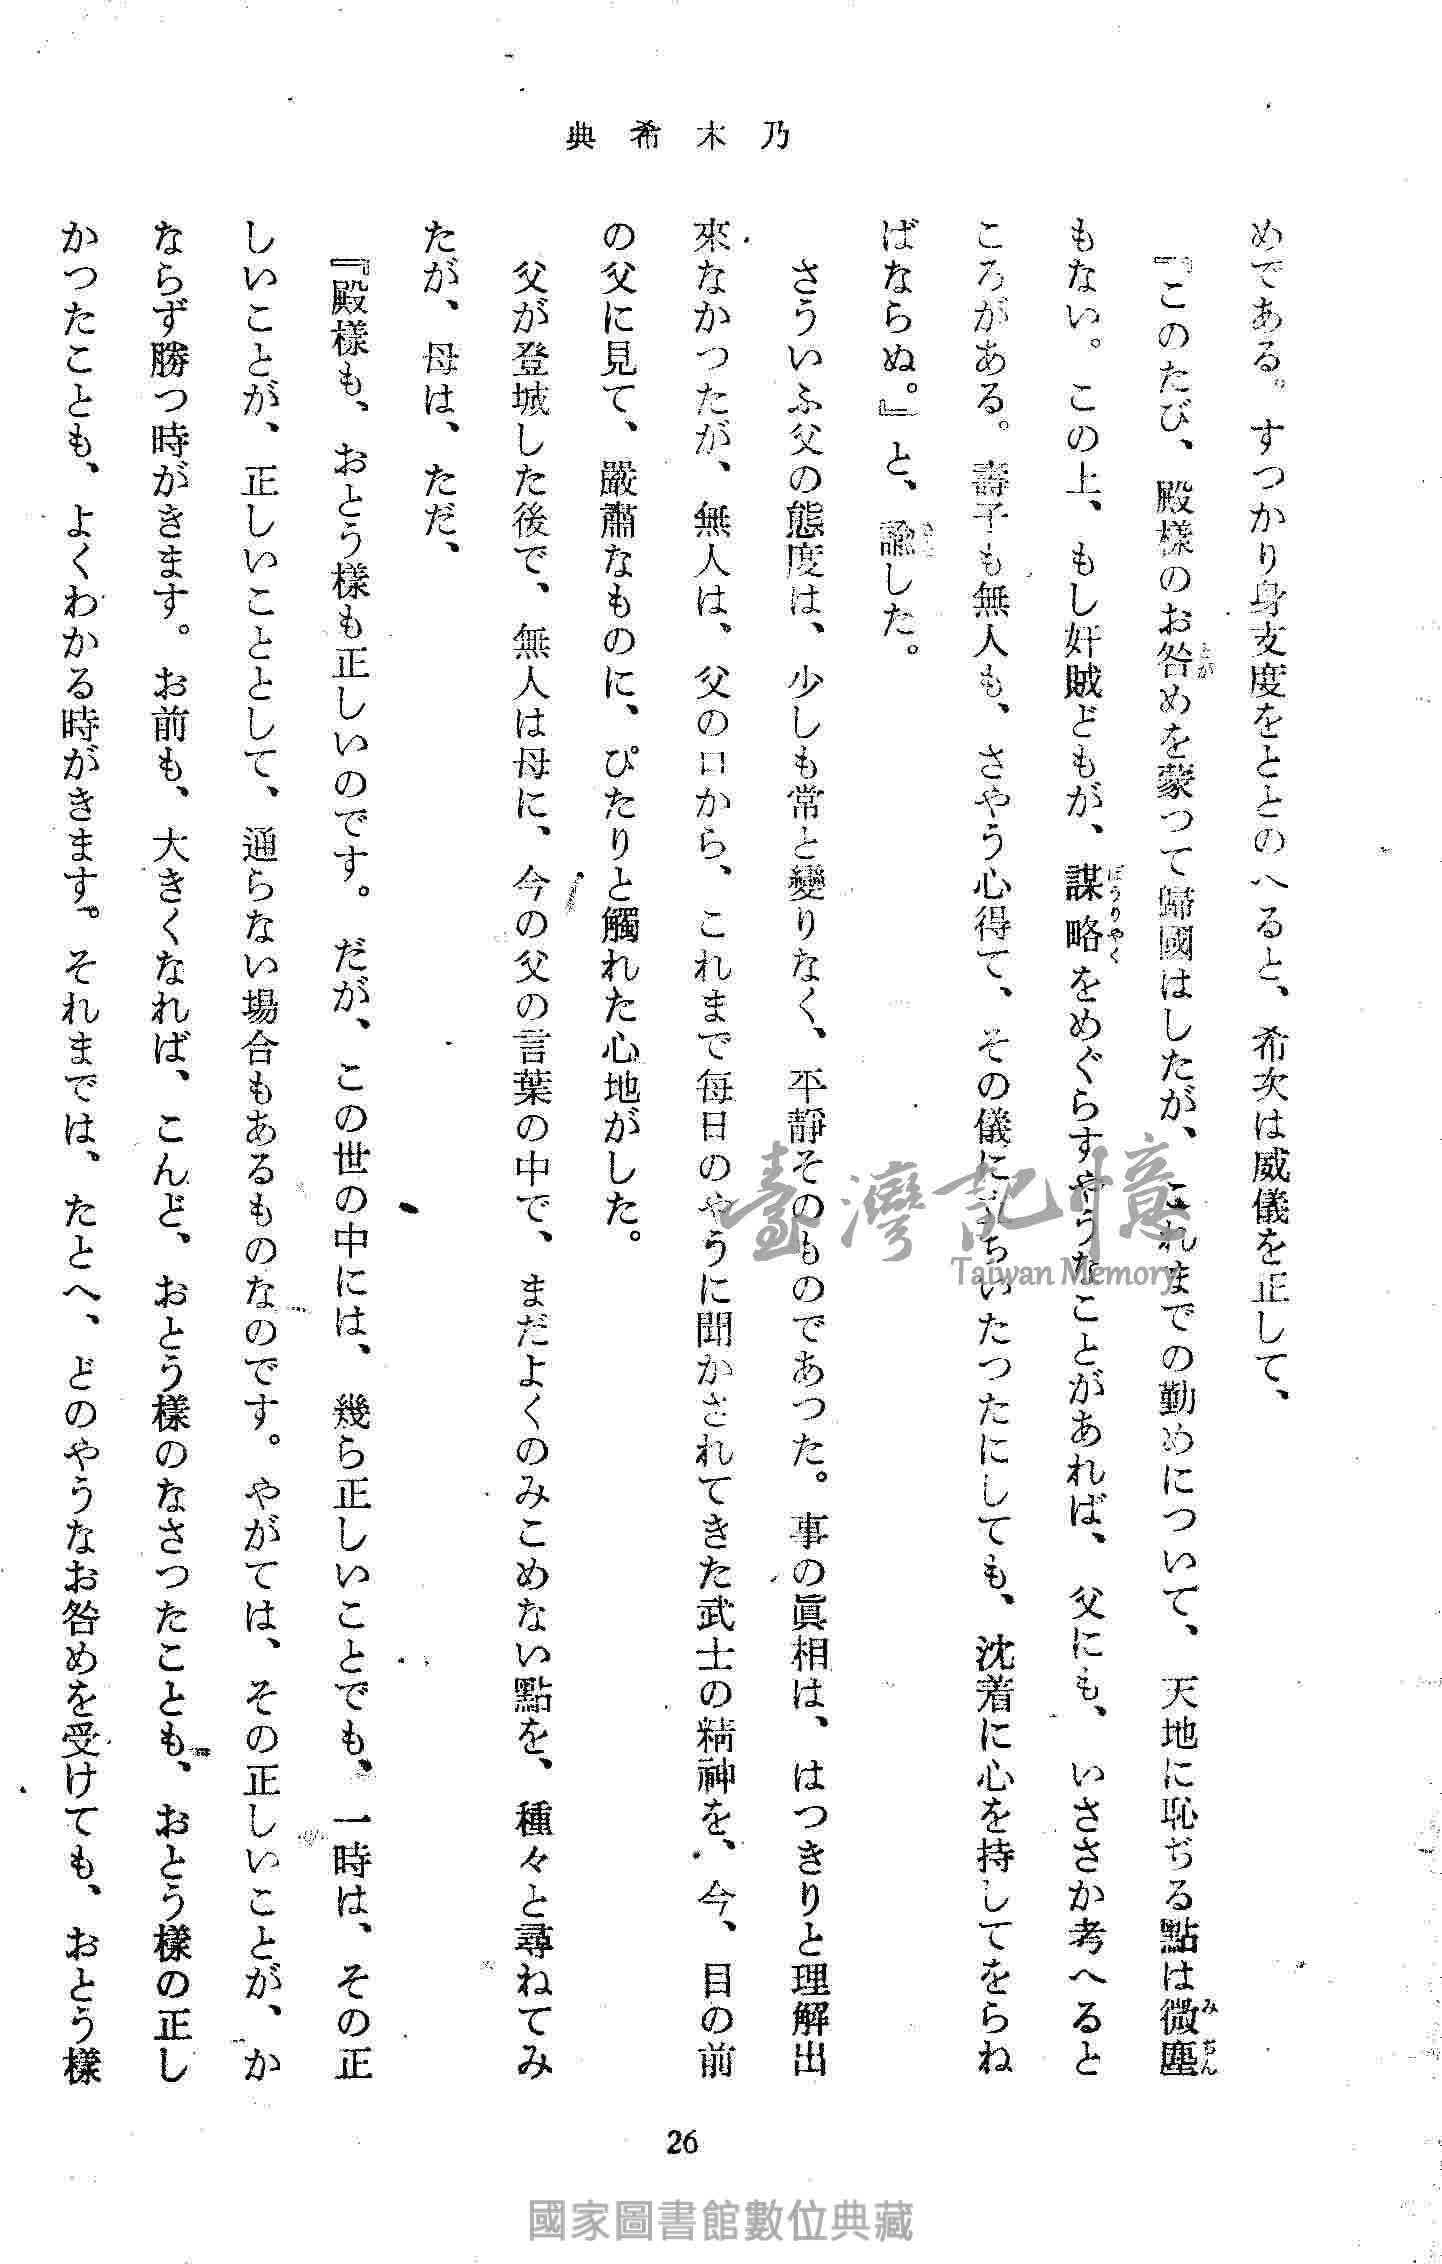 乃木希典
めである。すつかり身支度をととのへると、希次は威儀を正して、
『このたび、殿様のお咎めを蒙つて歸國はしたが、これまでの勤めについて、天地に恥ぢる點は微塵
もない。この上、もし奸賊どもが、謀略をめぐらすやうなことがあれば、父にも、いささか考へると
ころがある。壽子も無人も、さやう心得て、その儀に立ちいたつたにしても、沈着に心を持してをらね
ばならぬ。』と、諭した。
さういふ父の態度は、少しも常と變りなく、平靜そのものであつた。事の眞相は、はつきりと理解出
來なかつたが、無人は、父の口から、これまで毎日のやうに聞かされてきた武士の精神を、今、目の前
の父に見て、嚴肅なものに、ぴたりと觸れた心地がした。
父が登城した後で、無人は母に、今の父の言葉の中で、まだよくのみこめない點を、種々と尋ねてみ
たが、母は、ただ、
『殿樣も、おとう樣も正しいのです。だが、この世の中には、幾ら正しいことでも、一時は、その正
しいことが、正しいこととして、通らない場合もあるものなのです。やがては、その正しいことが、か
ならず勝つ時がきます。お前も、大きくなれば、こんど、おとう樣のなさつたことも、おとう樣の正し
かつたことも、よくわかる時がきます。それまでは、たとへ、どのやうなお咎めを受けても、おとう樣
26
臺灣記憶
Taiwan Memory
國家圖書館數位典藏